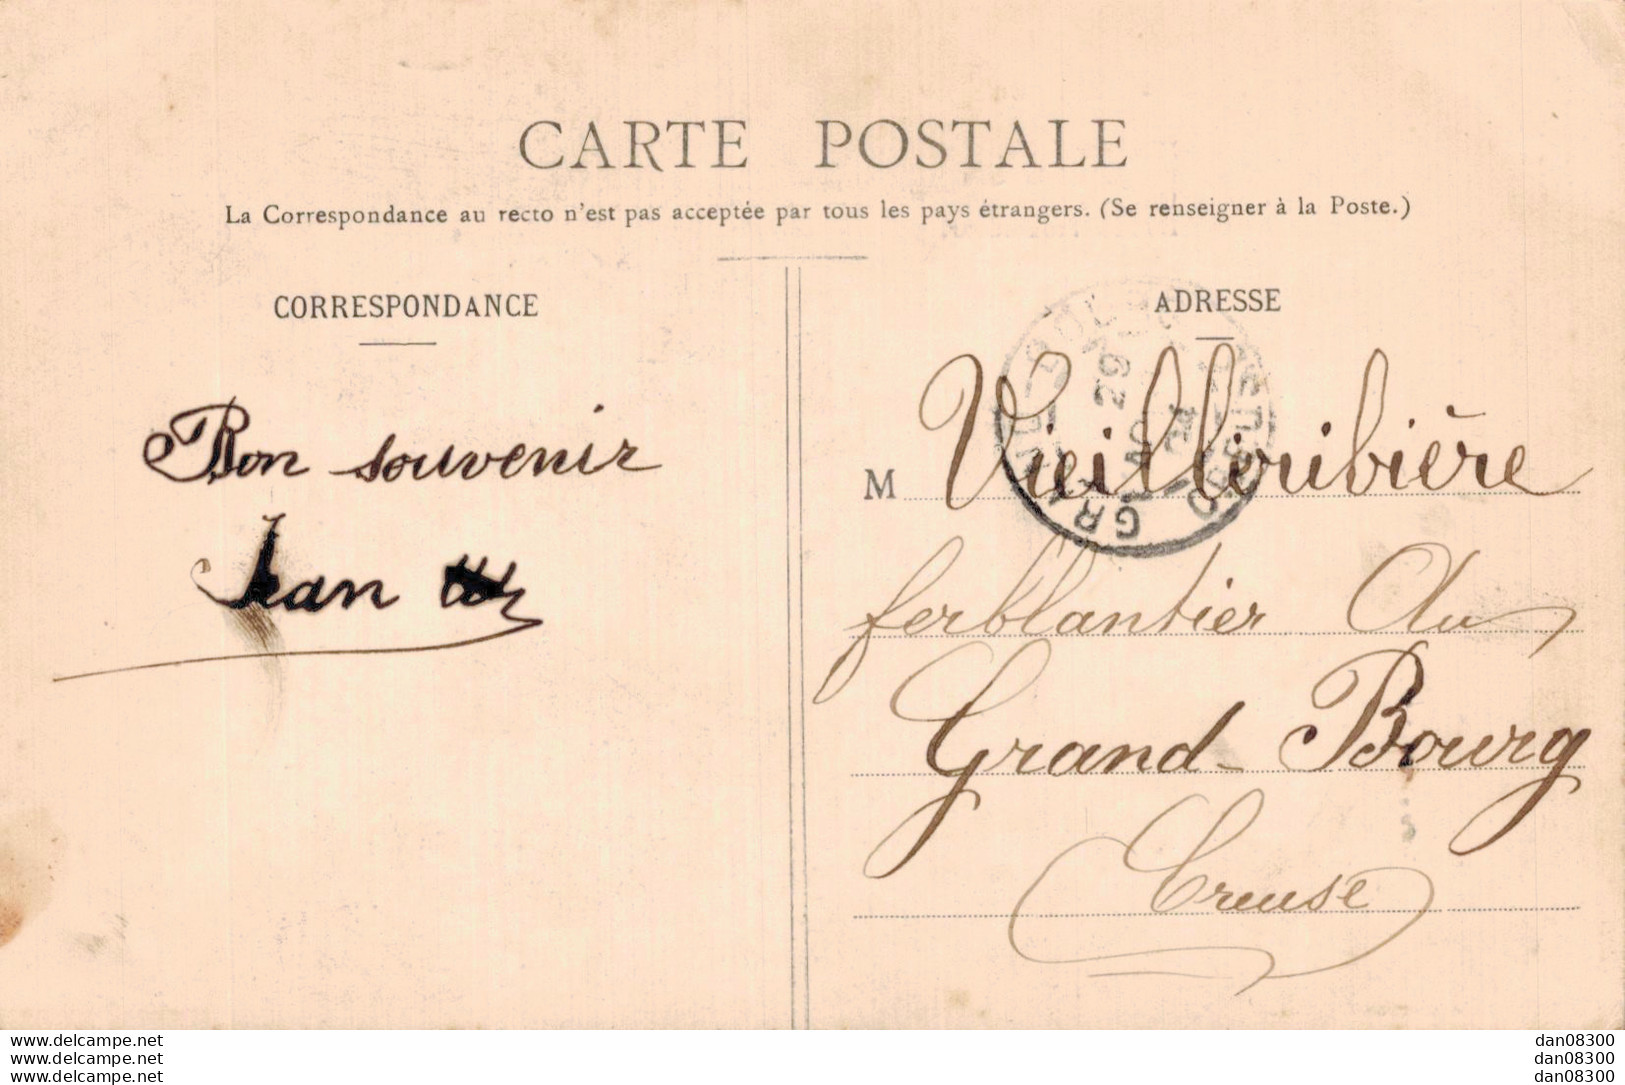 CARTE POSTALE
La Correspondance au recto n'est pas acceptée par tous les pays étrangers. (Se renseigner à la Poste.)
CORRESPONDANCE
Bon souvenir
Jean
ADRESSE
M Vieilleribière
ferblantier Au
Grand-Bourg
Creuse
29
www.delcampe.net
www.delcampe.net
www.delcampe.net
dan08300
dan08300
dan08300